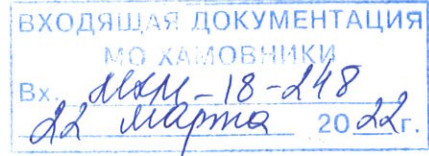 ВХОДЯЩАЯ ДОКУМЕНТАЦИЯ
МО ХАМОВНИКИ
Вх. МХМ-18-248
22 марта 2022г.